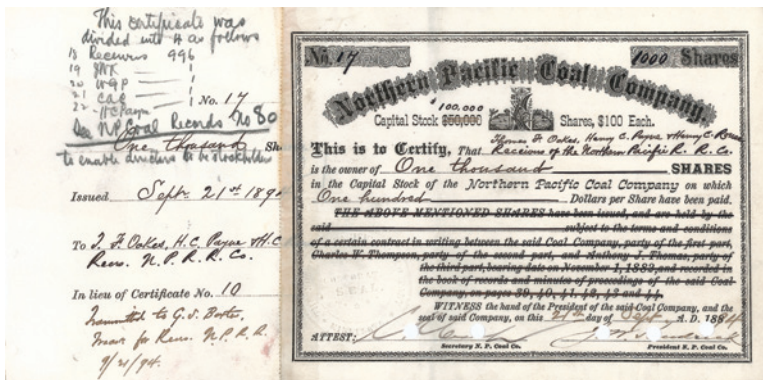 This certificate was
divided into 4 as follows
18 Receivers 996
19 JNK 1
20 WGP 1
21 CAC 1
22 - HCPayne 1
No. 17
See N.P. Coal Records No 80
One thousand Sh
to enable directors to be stockholders
Issued Sept. 21st 189
To T. F. Oakes, H.C. Payne & H.C
Recrs. N.P.R.R. Co.
In lieu of Certificate No. 10
Transmitted to G. S.
for Recrs. N.P.R.R.
9/21/94.
No. 17 1000 Shares
Northern Pacific Coal Company.
$100.000
Capital Stock $50,000 Shares, $100 Each.
Thomas F. Oakes, Henry C. Payne & Henry C. Rouse
This is to Certify, That Receivers of the Northern Pacific R. R. Co.
is the owner of One thousand SHARES
in the Capital Stock of the Northern Pacific Coal Company on which
One hundred Dollars per Share have been paid.
THE ABOVE MENTIONED SHARES have been issued, and are held by the
said subject to the terms and conditions
of a certain contract in writing between the said Coal Company, party of the first part,
Charles W. Thompson, party of the second part, and Anthony J. Thomas, party of
the third part, bearing date on November 1, 1882, and recorded in
the book of records and minutes of proceedings of the said Coal
Company, on pages 39, 40, 41, 42, 43 and 44.
WITNESS the hand of the President of the said Coal Company, and the
seal of said Company, on this 21st day of Sept A. D. 1894
SEAL
ATTEST:
Secretary N. P. Coal Co. President N. P. Coal Co.